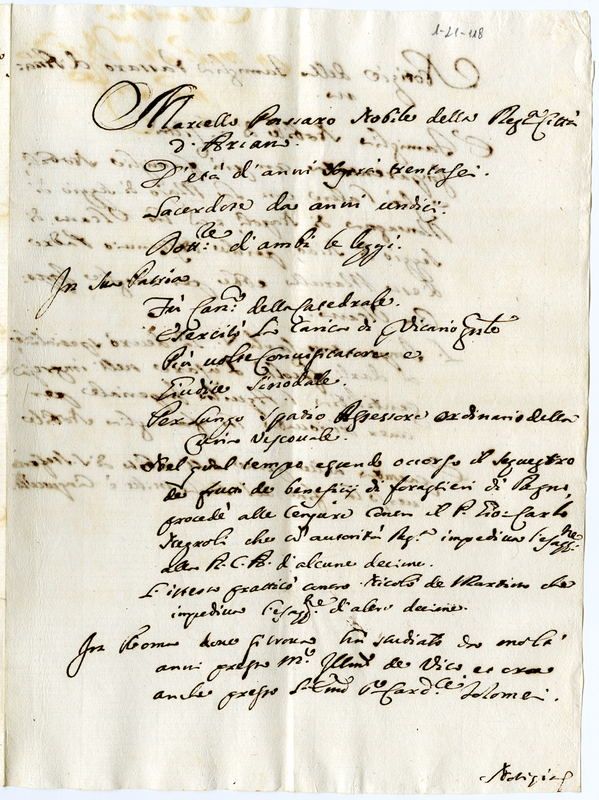 1-21-118
Marcello Passaro Nobile della Reg.ª Città
d'Ariano.
D'età d'anni sopra trentasei.
Sacerdote da anni undici.
Dott.re d'ambi le leggi.
In sua Patria
Fù Can.co della Catedrale.
Esercitò la Carica di Vicario Gn̄le
Più volte Convisitatore e
Giudice Sinodale.
Per lungo spatio Assessore ordinario della
Curia Vescovale.
Nel qual tempo essendo occorso il sequestro
de frutti de beneficij di forastieri di Regno,
procedè alle Censure contra il P. Gio: Carlo
Negroli che cō autorità Reg.ª impediva l'esaz.ne
alla R.C.A. d'alcune decime.
L'istesso pratticò contro Nicolò de Martino che
impediva l'esaz.ne d'altre decime.
In Roma dove si trova hà studiato da molti
anni presso M.r Illmō de Vico et ora
anche presso l'Emō S.r Card.le Tolomei.
Notizia